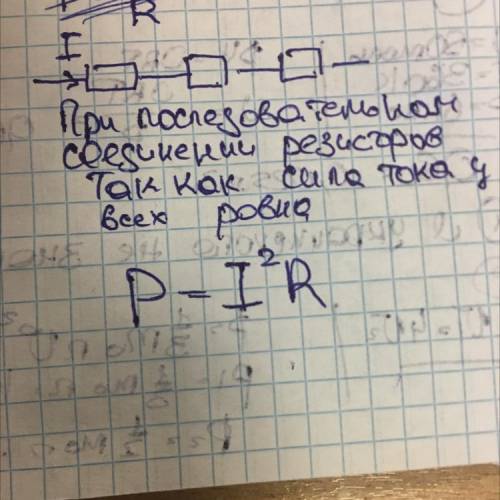 R
I
При последовательном
соединении резисторов
так как сила тока у
всех ровна
P = I²R